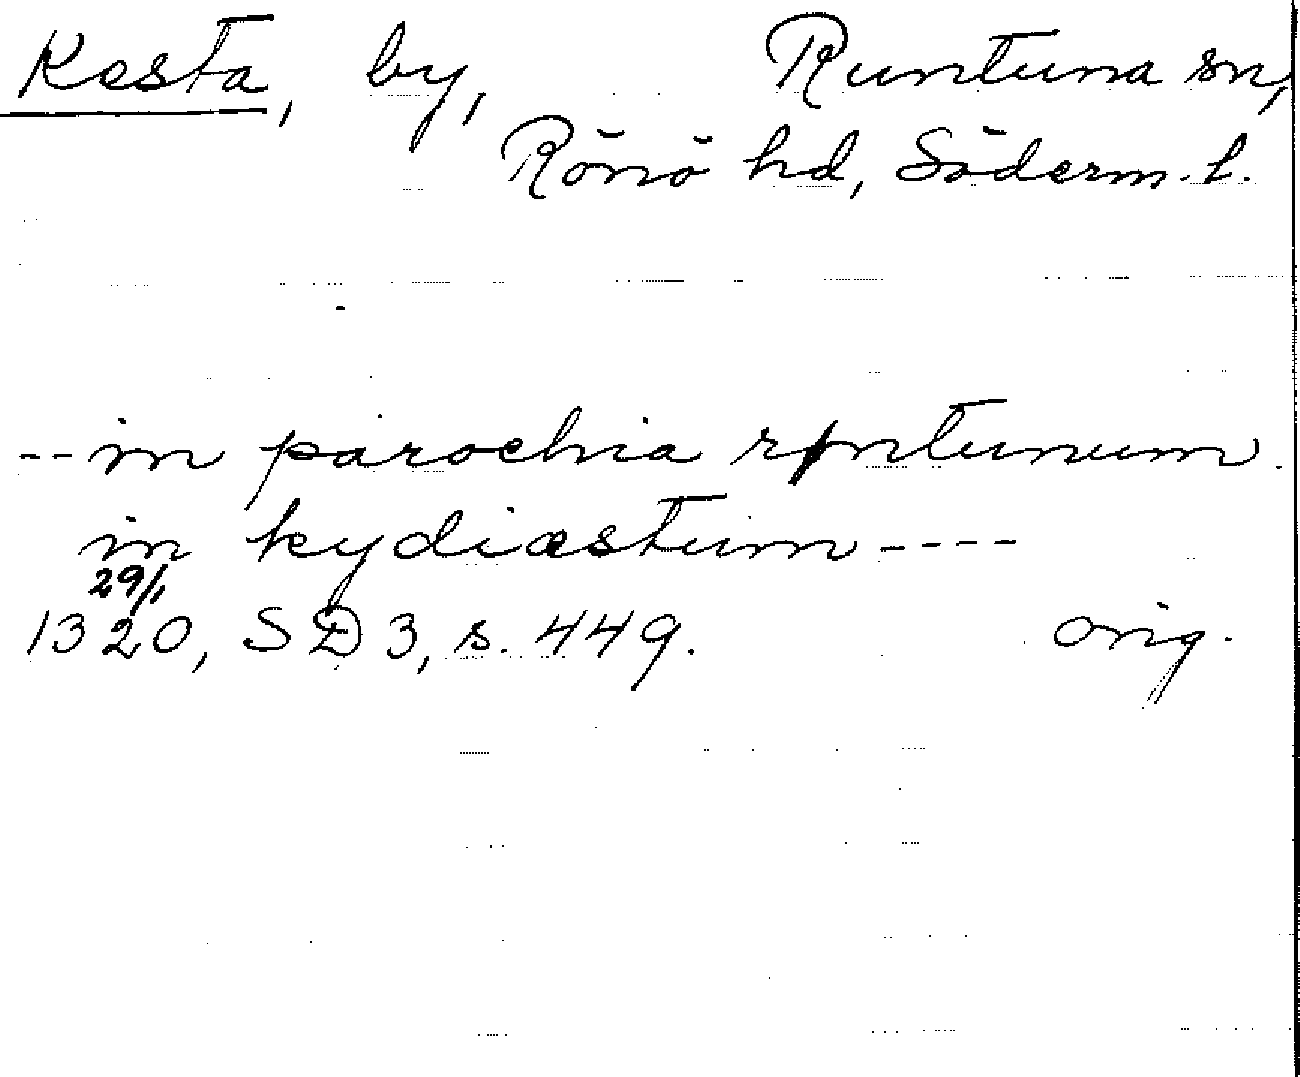 Kesta, by, Runtuna sn,
Rönö hd, Söderm. l.
-- in parochia røntunum
in kydiæstum ----
29/1
1320, SD 3, s. 449. orig.